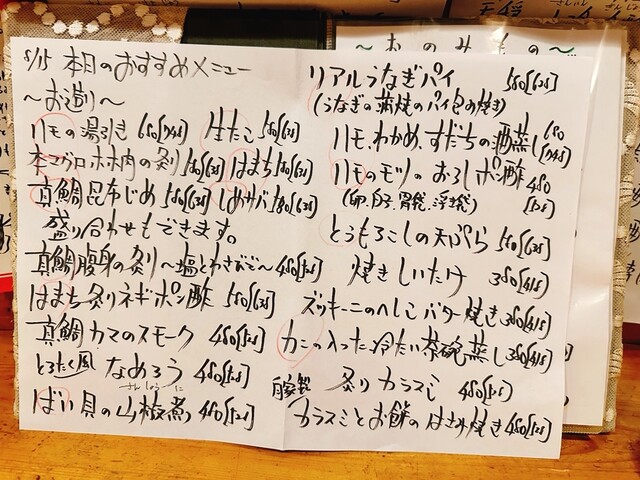 8/15 本日のおすすめメニュー
〜お造り〜
ハモの湯引き 680[748] 生だこ 580[638]
本マグロホホ肉の炙り 580[638] はまち 580[638]
真鯛昆布じめ 580[638] しめサバ 580[638]
盛り合わせもできます。
真鯛腹身の炙り〜塩とわさびで〜 480[528]
はまち炙りネギポン酢 580[638]
真鯛カマのスモーク 480[528]
とろたく風 なめろう 480[528]
さんしょうに
ばい貝の山椒煮 480[528]
リアルうなぎパイ 580[638]
(うなぎの蒲焼のパイ包み焼き)
ハモ、わかめ、すだちの酒蒸し 680[748]
ハモのモツのおろしポン酢 480[528]
(卵、白子、胃袋、浮袋)
とうもろこしの天ぷら 580[638]
焼きしいたけ 380[418]
ズッキーニのへしこバター焼き 380[418]
カニの入った冷たい茶碗蒸し 380[418]
自家製 炙りカラスミ 480[528]
カラスミとお餅のはさみ焼き 480[528]
〜おのみもの〜